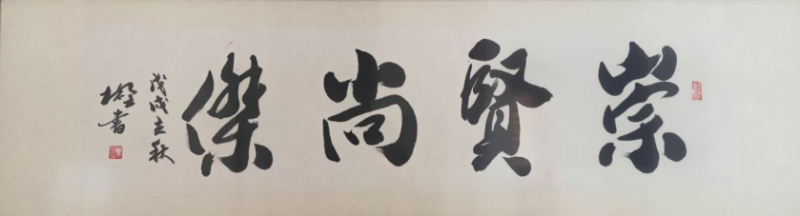 崇賢尚傑
戊戌立秋
書